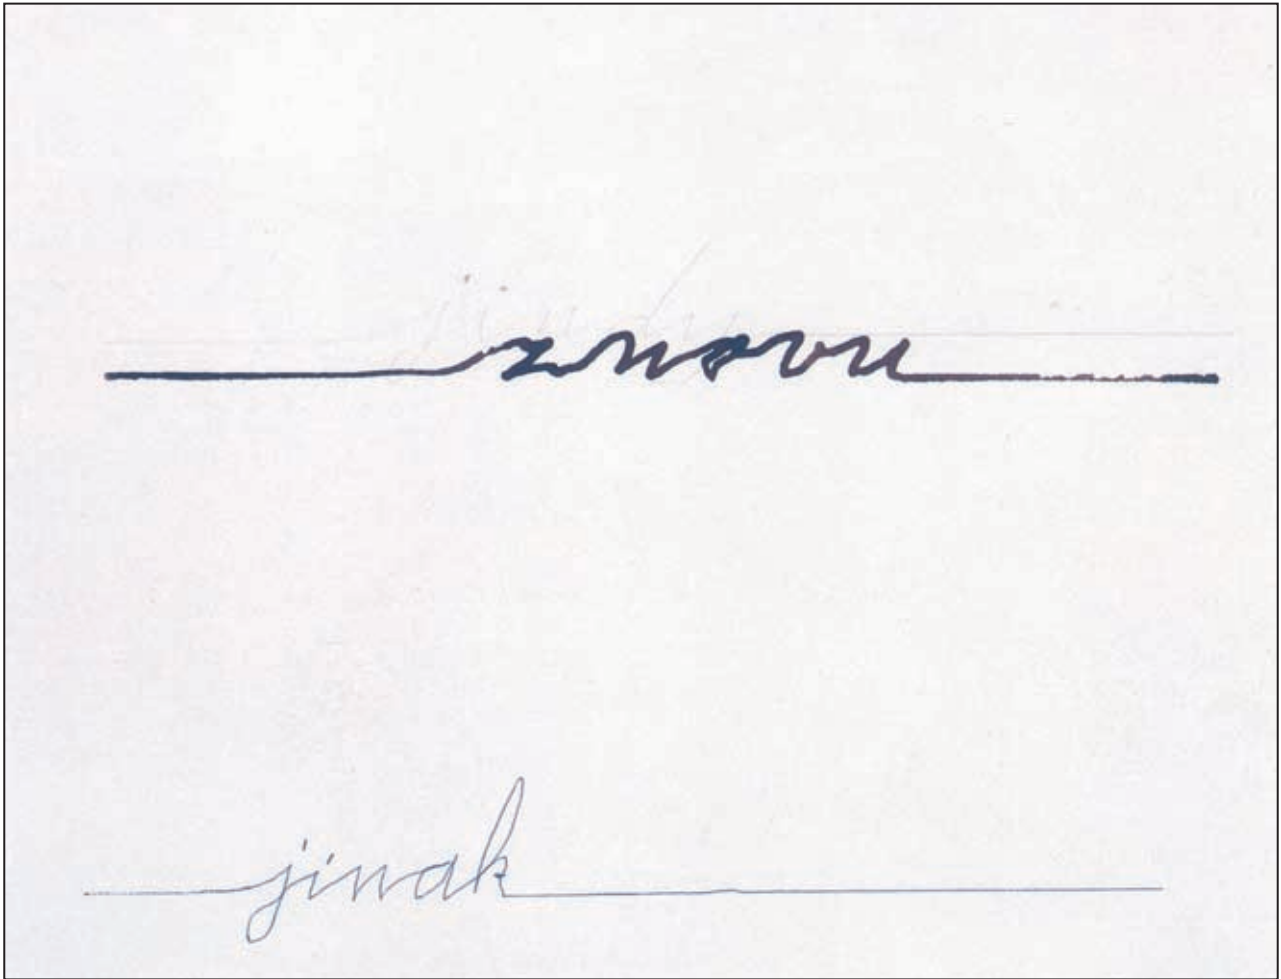 znovu
jinak